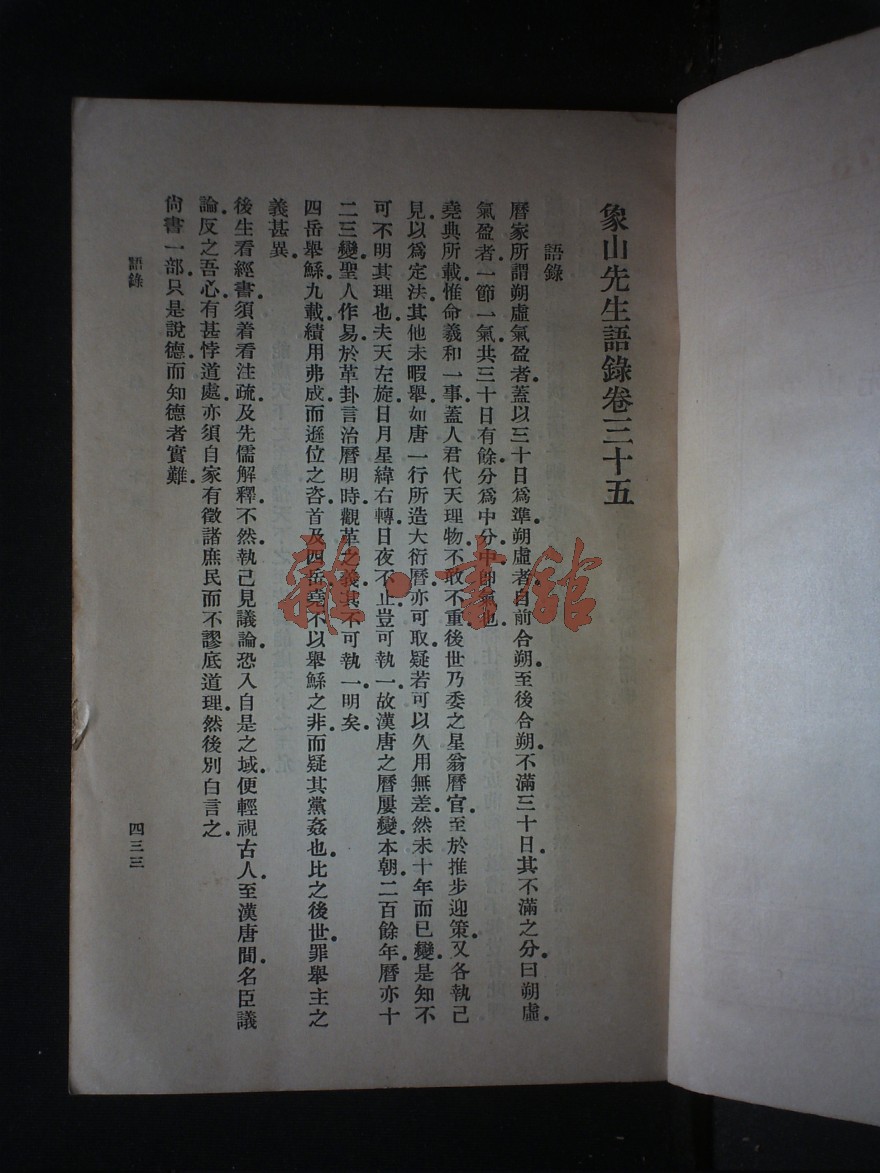 象山先生語錄卷三十五
語錄
曆家所謂朔虛氣盈者蓋以三十日爲準朔虛者自前合朔至後合朔不滿三十日其不滿之分曰朔虛
氣盈者一節一氣共三十日有餘分爲中分中卽氣也
堯典所載惟命羲和一事蓋人君代天理物不敢不重後世乃委之星翁曆官至於推步迎策又各執己
見以爲定法其他未暇舉如唐一行所造大衍曆亦可取疑若可以久用無差然未十年而已變是知不
可不明其理也夫天左旋日月星緯右轉日夜不止豈可執一故漢唐之曆屢變本朝二百餘年曆亦十
二三變聖人作易於革卦言治曆明時觀革之義其不可執一明矣
四岳舉鯀九載績用弗成而遜位之咨首及四岳堯不以舉鯀之非而疑其黨姦也比之後世罪舉主之
義甚異
後生看經書須着看注疏及先儒解釋不然執己見議論恐入自是之域便輕視古人至漢唐間名臣議
論反之吾心有甚悖道處亦須自家有徵諸庶民而不謬底道理然後別白言之
尚書一部只是說德而知德者實難
語錄
四三三
雜·書館